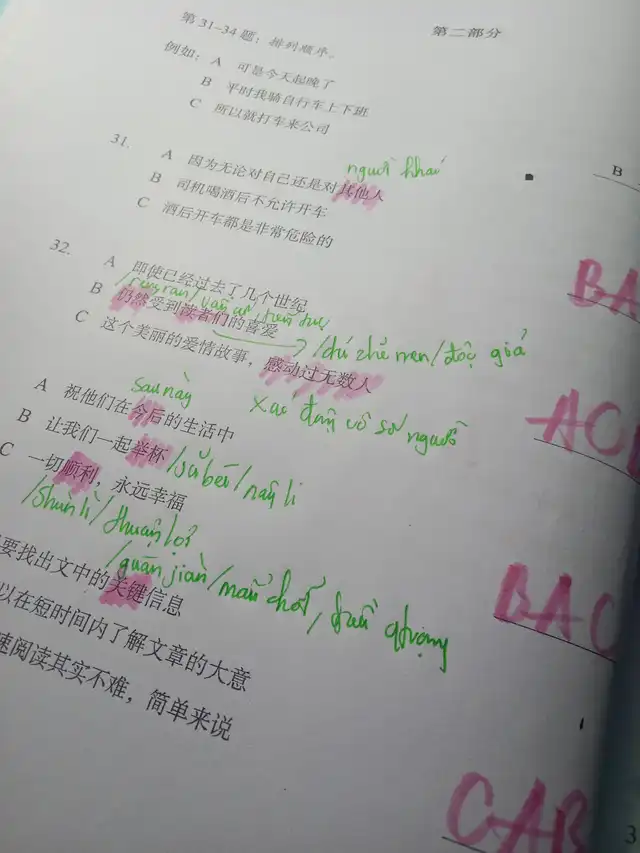 第二部分
第31-34题：排列顺序。
例如：A 可是今天起晚了
B 平时我骑自行车上下班
C 所以就打车来公司
B
31.
người khác
A 因为无论对自己还是对其他人
B 司机喝酒后不允许开车
C 酒后开车都是非常危险的
BA
32.
A 即使已经过去了几个世纪
B 仍然受到读者们的喜爱
/dú zhě men/đọc giả
C 这个美丽的爱情故事，感动过无数人
xúc động vô số người
ACB
sau này
A 祝他们在今后的生活中
B 让我们一起举杯
/jǔ bēi/nâng li
C 一切顺利，永远幸福
/shùn lì/thuận lợi
BAC
/guān jiàn/mấu chốt, quan trọng
要找出文中的关键信息
以在短时间内了解文章的大意
速阅读其实不难，简单来说
CAB
3